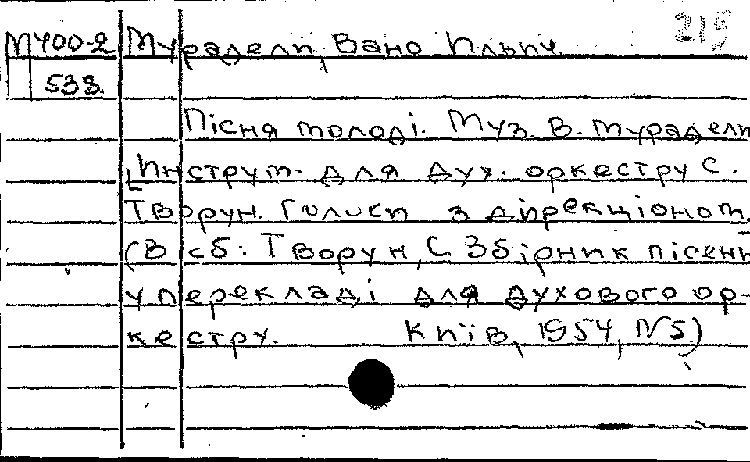 215
М400-2 Мураделі, Вано Ільіч
533.
Пісня молоді. Муз. В. Мураделі
Інструм. для дух. оркестру С.
Творун. Голоси з дірекціоном.
(В сб: Творун, С Збірник пісень
у перекладі для духового ор-
кестру. Київ, 1954, №5)